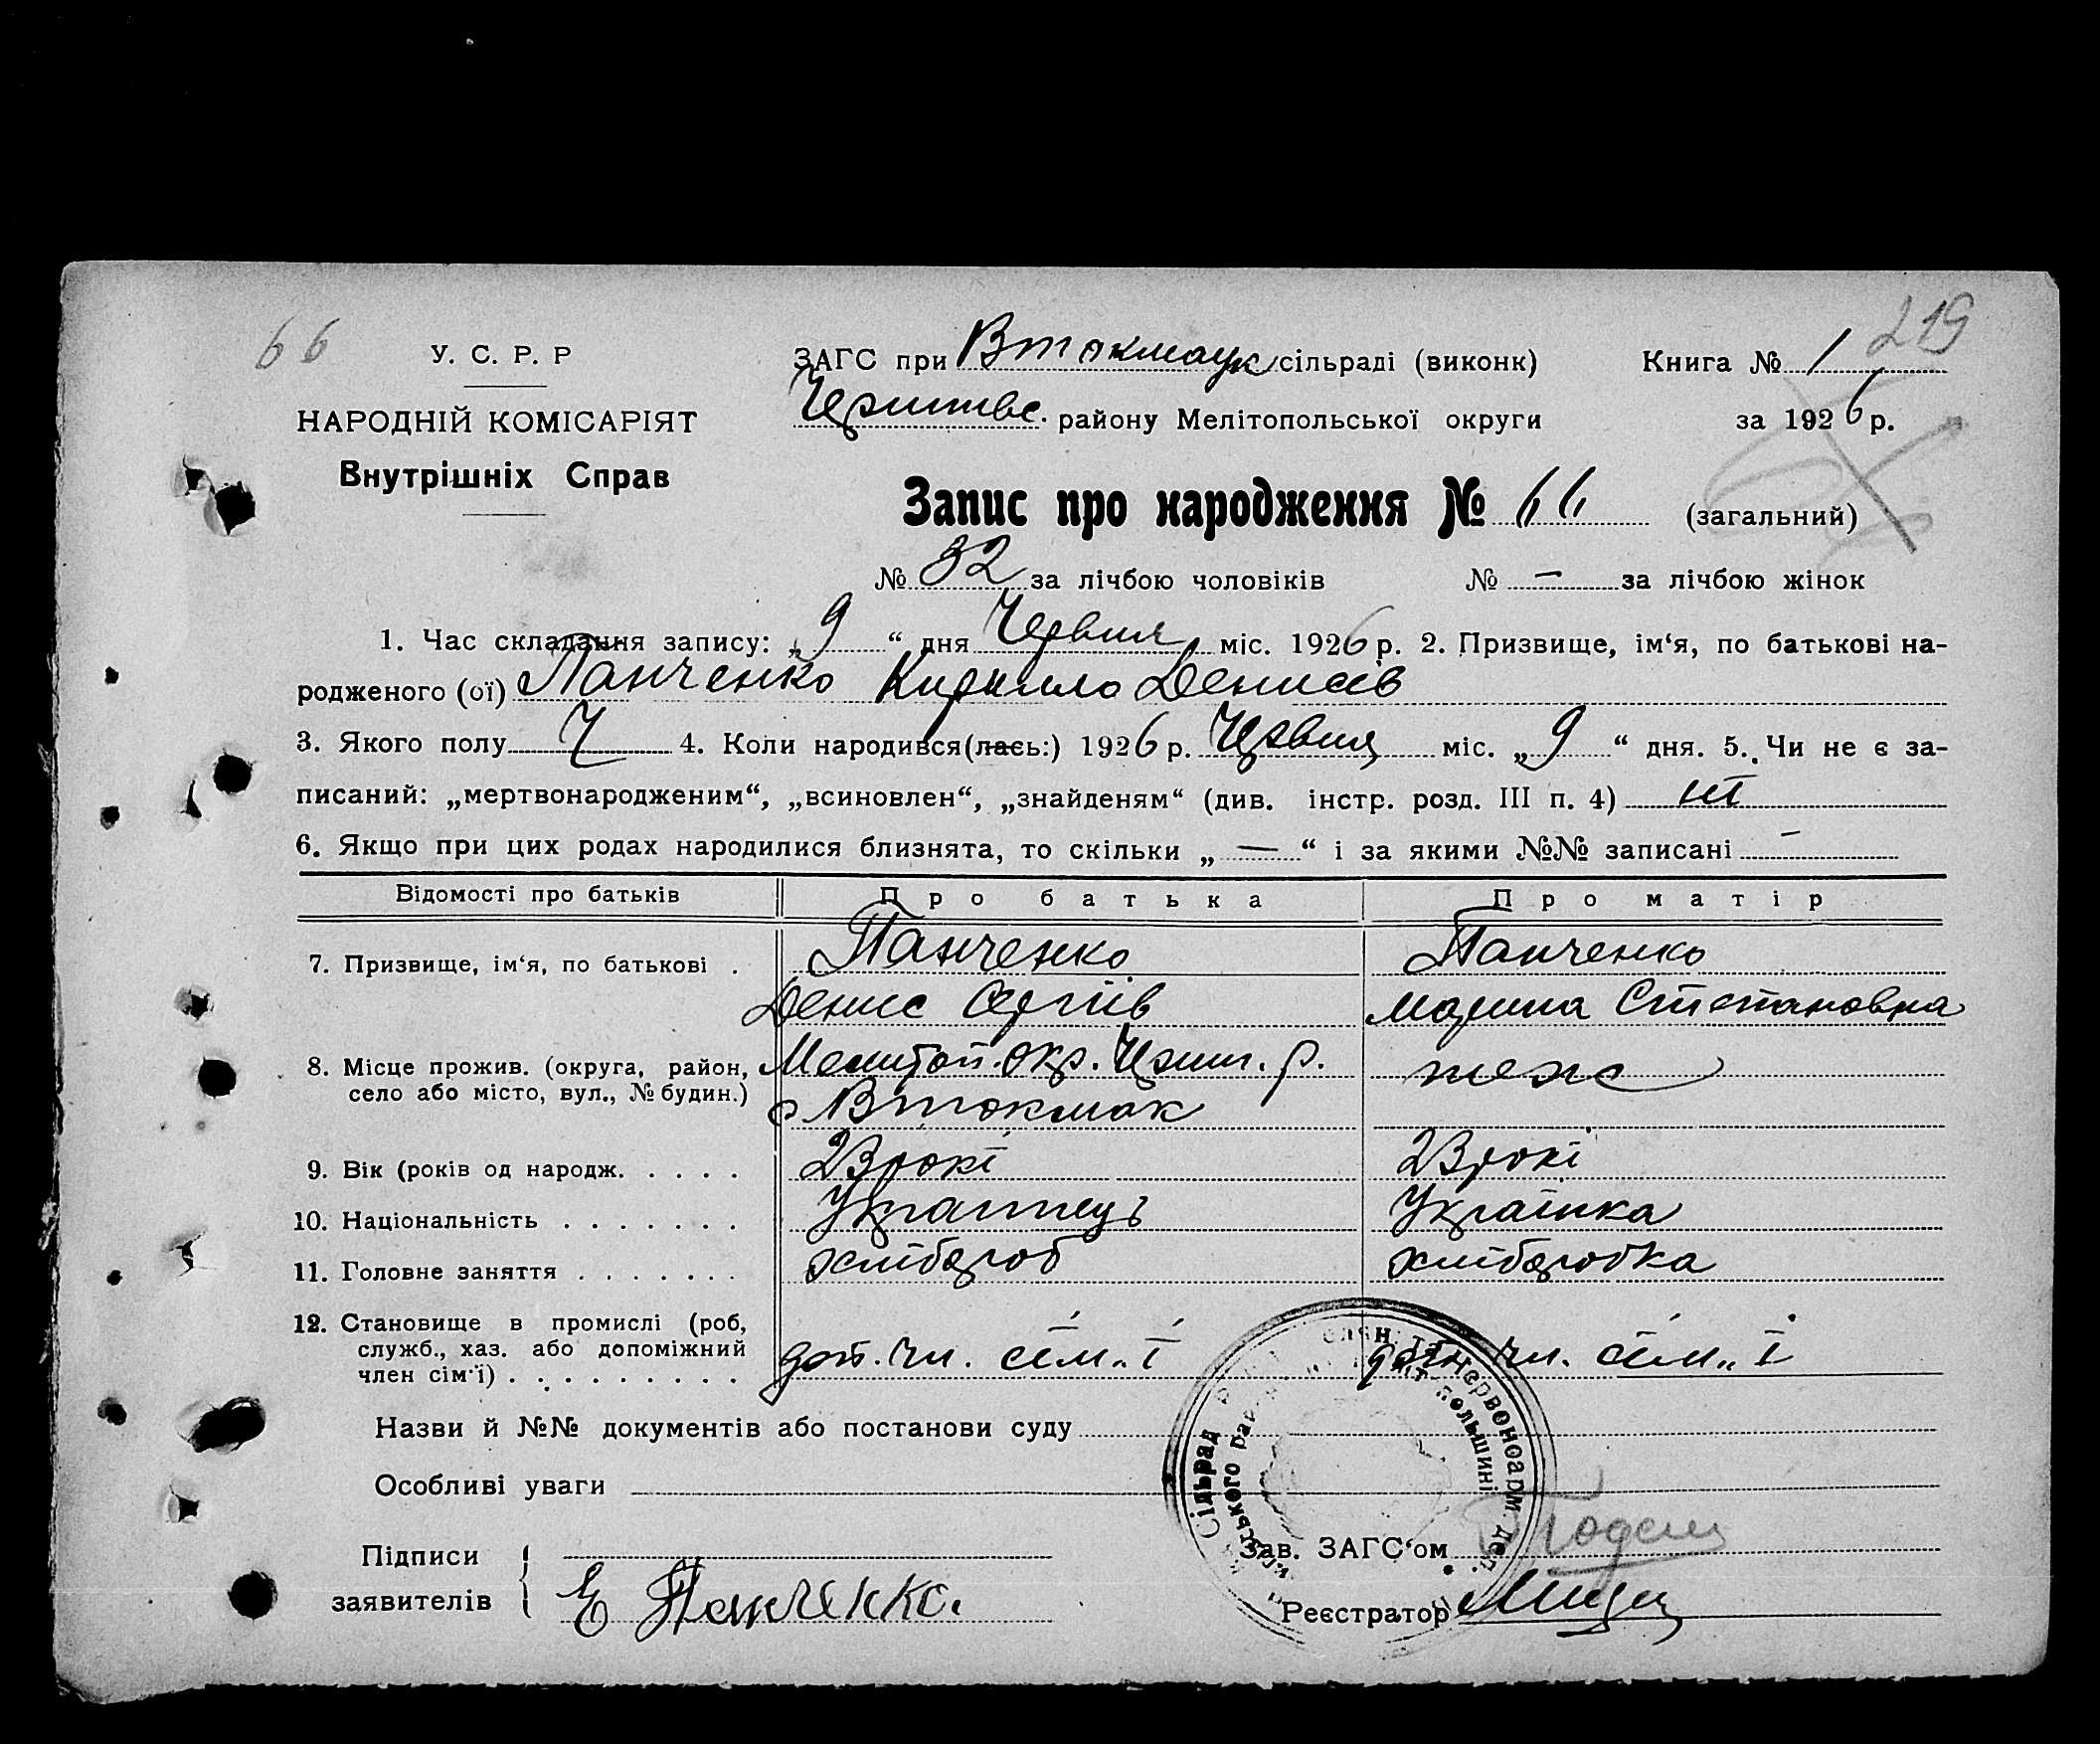 66
219
У. С. Р. Р
ЗАГС при Втокмацк сільраді (виконк) Книга № 1
НАРОДНІЙ КОМІСАРІЯТ
району Мелітопольської округи за 1926 р.
Внутрішніх Справ
Запис про народження № 66 (загальний)
№ 32 за лічбою чоловіків № — за лічбою жінок
1. Час складання запису: „9“ дня Червня міс. 1926 р. 2. Призвище, ім‘я, по батькові на-
родженого (ої) Панченко Кирилло Денисів
3. Якого полу Ч 4. Коли народився(лась:) 1926 р. Червня міс. „9“ дня. 5. Чи не є за-
писаний: „мертвонародженим“, „всиновлен“, „знайденям“ (див. інстр. розд. III п. 4) ні
6. Якщо при цих родах народилися близнята, то скільки „—“ і за якими №№ записані —
Відомості про батьків Про батька Про матір
7. Призвище, ім‘я, по батькові . Панченко Панченко
Денис Сергіїв Марина Степановна
8. Місце прожив. (округа, район, Мелитоп. окр. Черніг. р. теже
село або місто, вул., № будин.) с Втокмак
9. Вік (років од народж. . . . . 23 рокі 23 рокі
10. Національність . . . . . . . Українець Українка
11. Головне заняття . . . . . . . хлібороб хліборобка
12. Становище в промислі (роб,
служб., хаз. або допоміжний доп. чл. сім„ї доп. чл. сім„ї
член сім‘ї) . . . . . . . . . .
Назви й №№ документів або постанови суду
Особливі уваги
Підписи Зав. ЗАГС‘ом
заявителів Е Панченко. Реєстратор
Сільрад